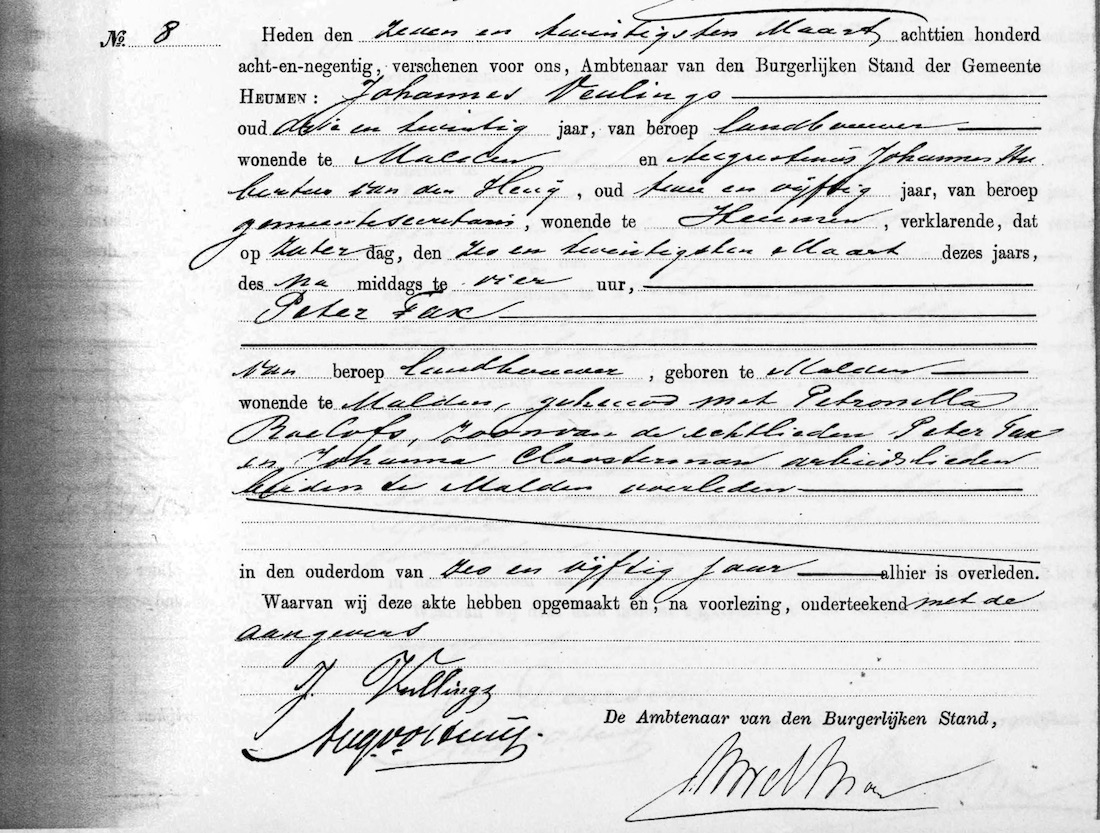 No. 8 Heden den zeven en twintigsten Maart achttien honderd
acht-en-negentig, verschenen voor ons, Ambtenaar van den Burgerlijken Stand der Gemeente
HEUMEN: Johannes Veulings
oud drie en twintig jaar, van beroep landbouwer
wonende te Malden en Augustinus Johannes Hu
bertus van den Heuy, oud twee en vijftig jaar, van beroep
gemeentesecretaris, wonende te Heumen, verklarende, dat
op Zaterdag, den zes en twintigsten Maart dezes jaars,
des na middags te vier uur,
Peter Fax
van beroep landbouwer, geboren te Malden
wonende te Malden, gehuwd met Petronella
Roelofs, zoon van de echtlieden Peter Fax
en Johanna Cloosterman arbeidslieden
beiden te Malden overleden
in den ouderdom van zes en vijftig jaar alhier is overleden.
Waarvan wij deze akte hebben opgemaakt en, na voorlezing, onderteekend met de
aangevers
J. Vullings
De Ambtenaar van den Burgerlijken Stand,